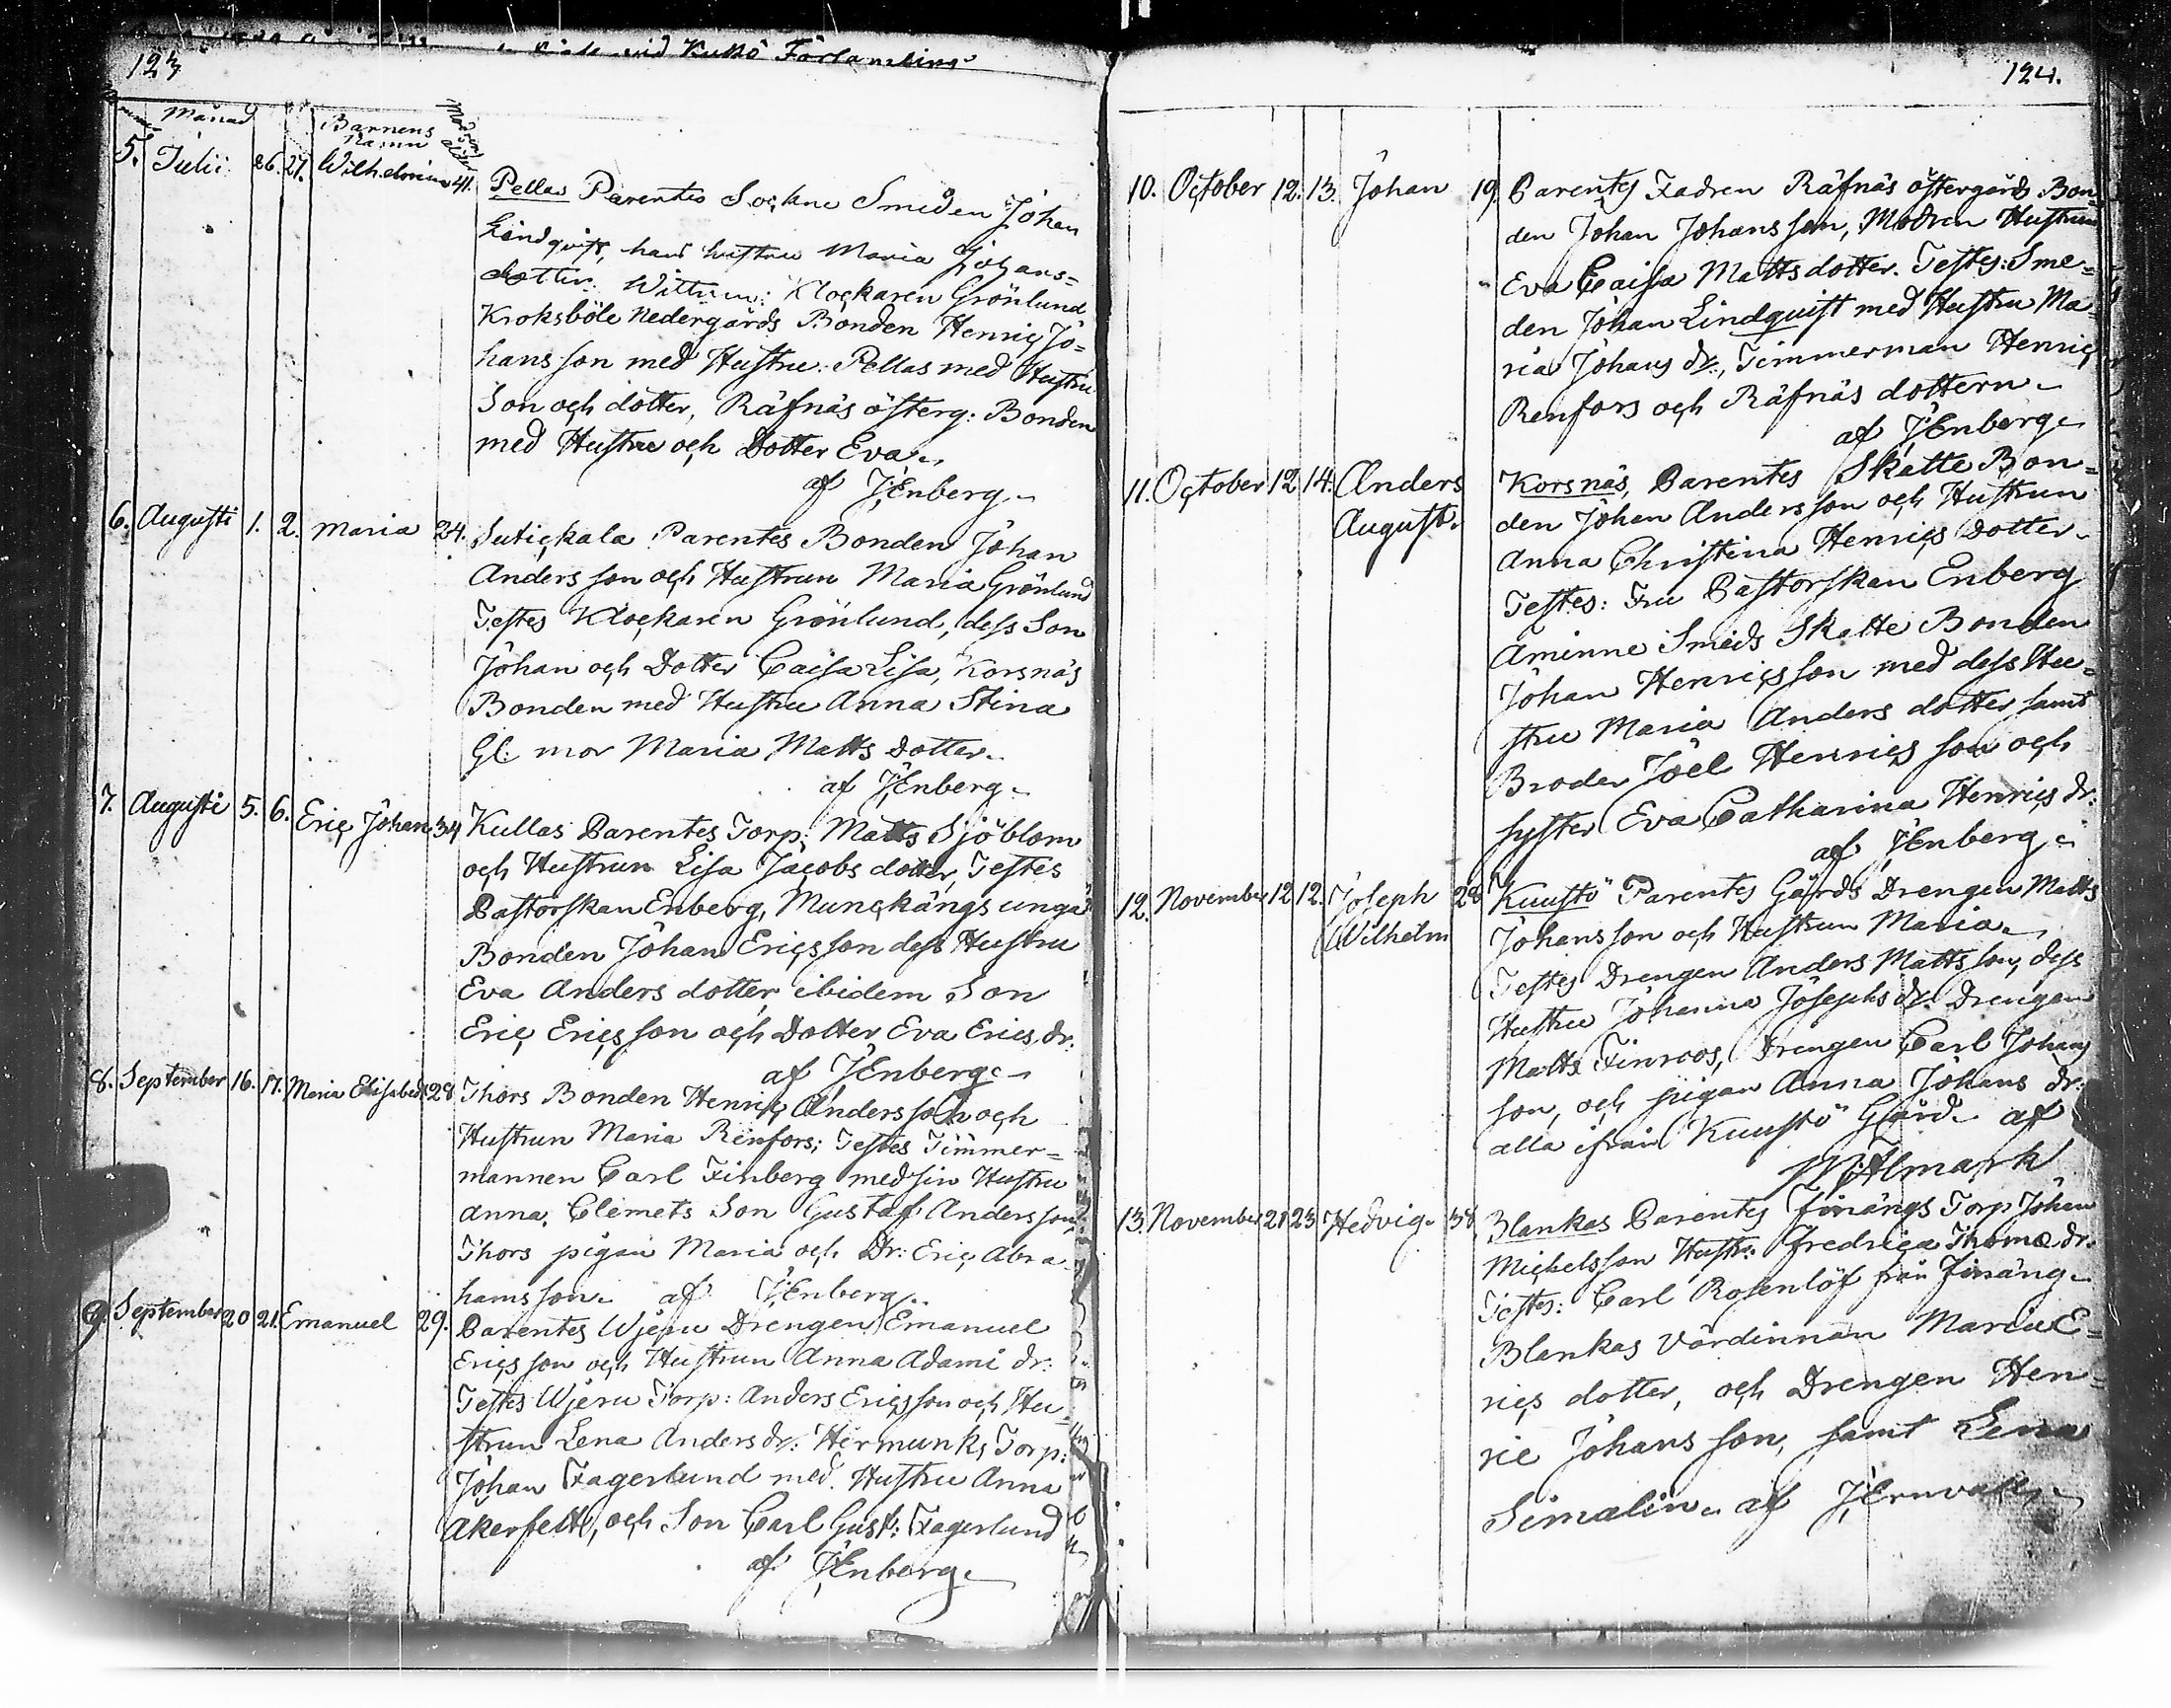 vid Kustö Församling
123
Månad Barnens Namn Modrens ålder
5. Julii 26. 27. Wilhelmina 41. Pellas Parentes Sockne Smeden Johan
Lindqvist, hans hustru Maria Johans=
dotter. Wittnen: Klockaren Grönlund
Kroksböle Nedergårds Bonden Henric Jo=
hansson med Hustru. Pellas med Hustru
Son och dotter, Räfnäs österg: Bonden
med Hustru och Dotter Eva.
af J Enberg.
6. Augusti 1. 2. Maria 24. Sutickala Parentes Bonden Johan
Andersson och Hustrun Maria Grönlund
Testes Klockaren Grönlund, dess Son
Johan och Dotter Caisa Lisa, Korsnäs
Bonden med Hustru Anna Stina
Gl. mor Maria Matts Dotter.
af J Enberg.
7. Augusti 5. 6. Eric Johan 34 Kullas Parentes Torp: Matts Sjöblom
och Hustrun Lisa Jacobs dotter, Testes
Pastorskan Enberg, Munckängs unga
Bonden Johan Ericsson dess Hustru
Eva Anders dotter ibidem Son
Eric Ericsson och Dotter Eva Erics dr.
af J Enberg.
8. September 16. 17. Maria Elisabed 28 Thors Bonden Henric Andersson och
Hustrun Maria Renfors; Testes Timmer=
mannen Carl Finberg med sin Hustru
Anna, Clemets Son Gustaf Andersson,
Thors pigan Maria och Dr: Eric Abra
hamsson. af J Enberg.
9. September 20 21. Emanuel 29. Parentes Wjeru Drengen Emanuel
Ericsson och Hustrun Anna Adami dr:
Testes Wjeru Torp: Anders Ericsson och Hu=
strun Lena Anders dr: Hermunks Torp:
Johan Fagerlund med Hustru Anna
Åkerfelt, och Son Carl Gust: Fagerlund
af J Enberg.
124.
10. October 12. 13. Johan 19. Parentes Fadren Räfnäs östergårds Bon=
den Johan Johansson, Modren Hustrun
Eva Caisa Mattsdotter. Testes: Sme=
den Johan Lindquist med Hustru Ma
ria Johans dr., Timmerman Henric
Renfors och Räfnäs dottern.
af J Enberg.
11. October 12 14. Anders August. Korsnäs, Parentes Skatte Bon=
den Johan Andersson och Hustrun
Anna Christina Henrics Dotter.
Testes: Fru Pastorskan Enberg
Aminne Smeds Skatte Bonden
Johan Henricsson med dess Hu=
stru Maria Anders dotter samt
Broder Joel Henrics son och
syster Eva Catharina Henrics dr:
af J Enberg.
12. November 12 12. Joseph Wilhelm 28 Kuustö Parentes Gårds Drengen Matts
Johansson och Hustrun Maria.
Testes Drengen Anders Mattsson, dess
Hustru Johanna Josephs dr. Drengen
Matts Finroos, Drengen Carl Johans
son, och pigan Anna Johans dr:
alla ifrån Kuustö Gård. af
Almark
13. November 21 23 Hedvig. 38. Blankas Parentes Finängs Torp Johan
Michelsson Hustr: Fredrica Thomæ dr.
Testes: Carl Rosenlöf från Finäng.
Blankas Värdinnan Maria E=
rics dotter, och Drengen Hen=
ric Johansson, samt Lena
Simalin. af J Ernvall.